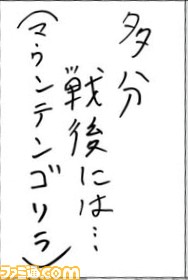 多分
戦後には…
（マウンテンゴリラ）
ファミ通.com